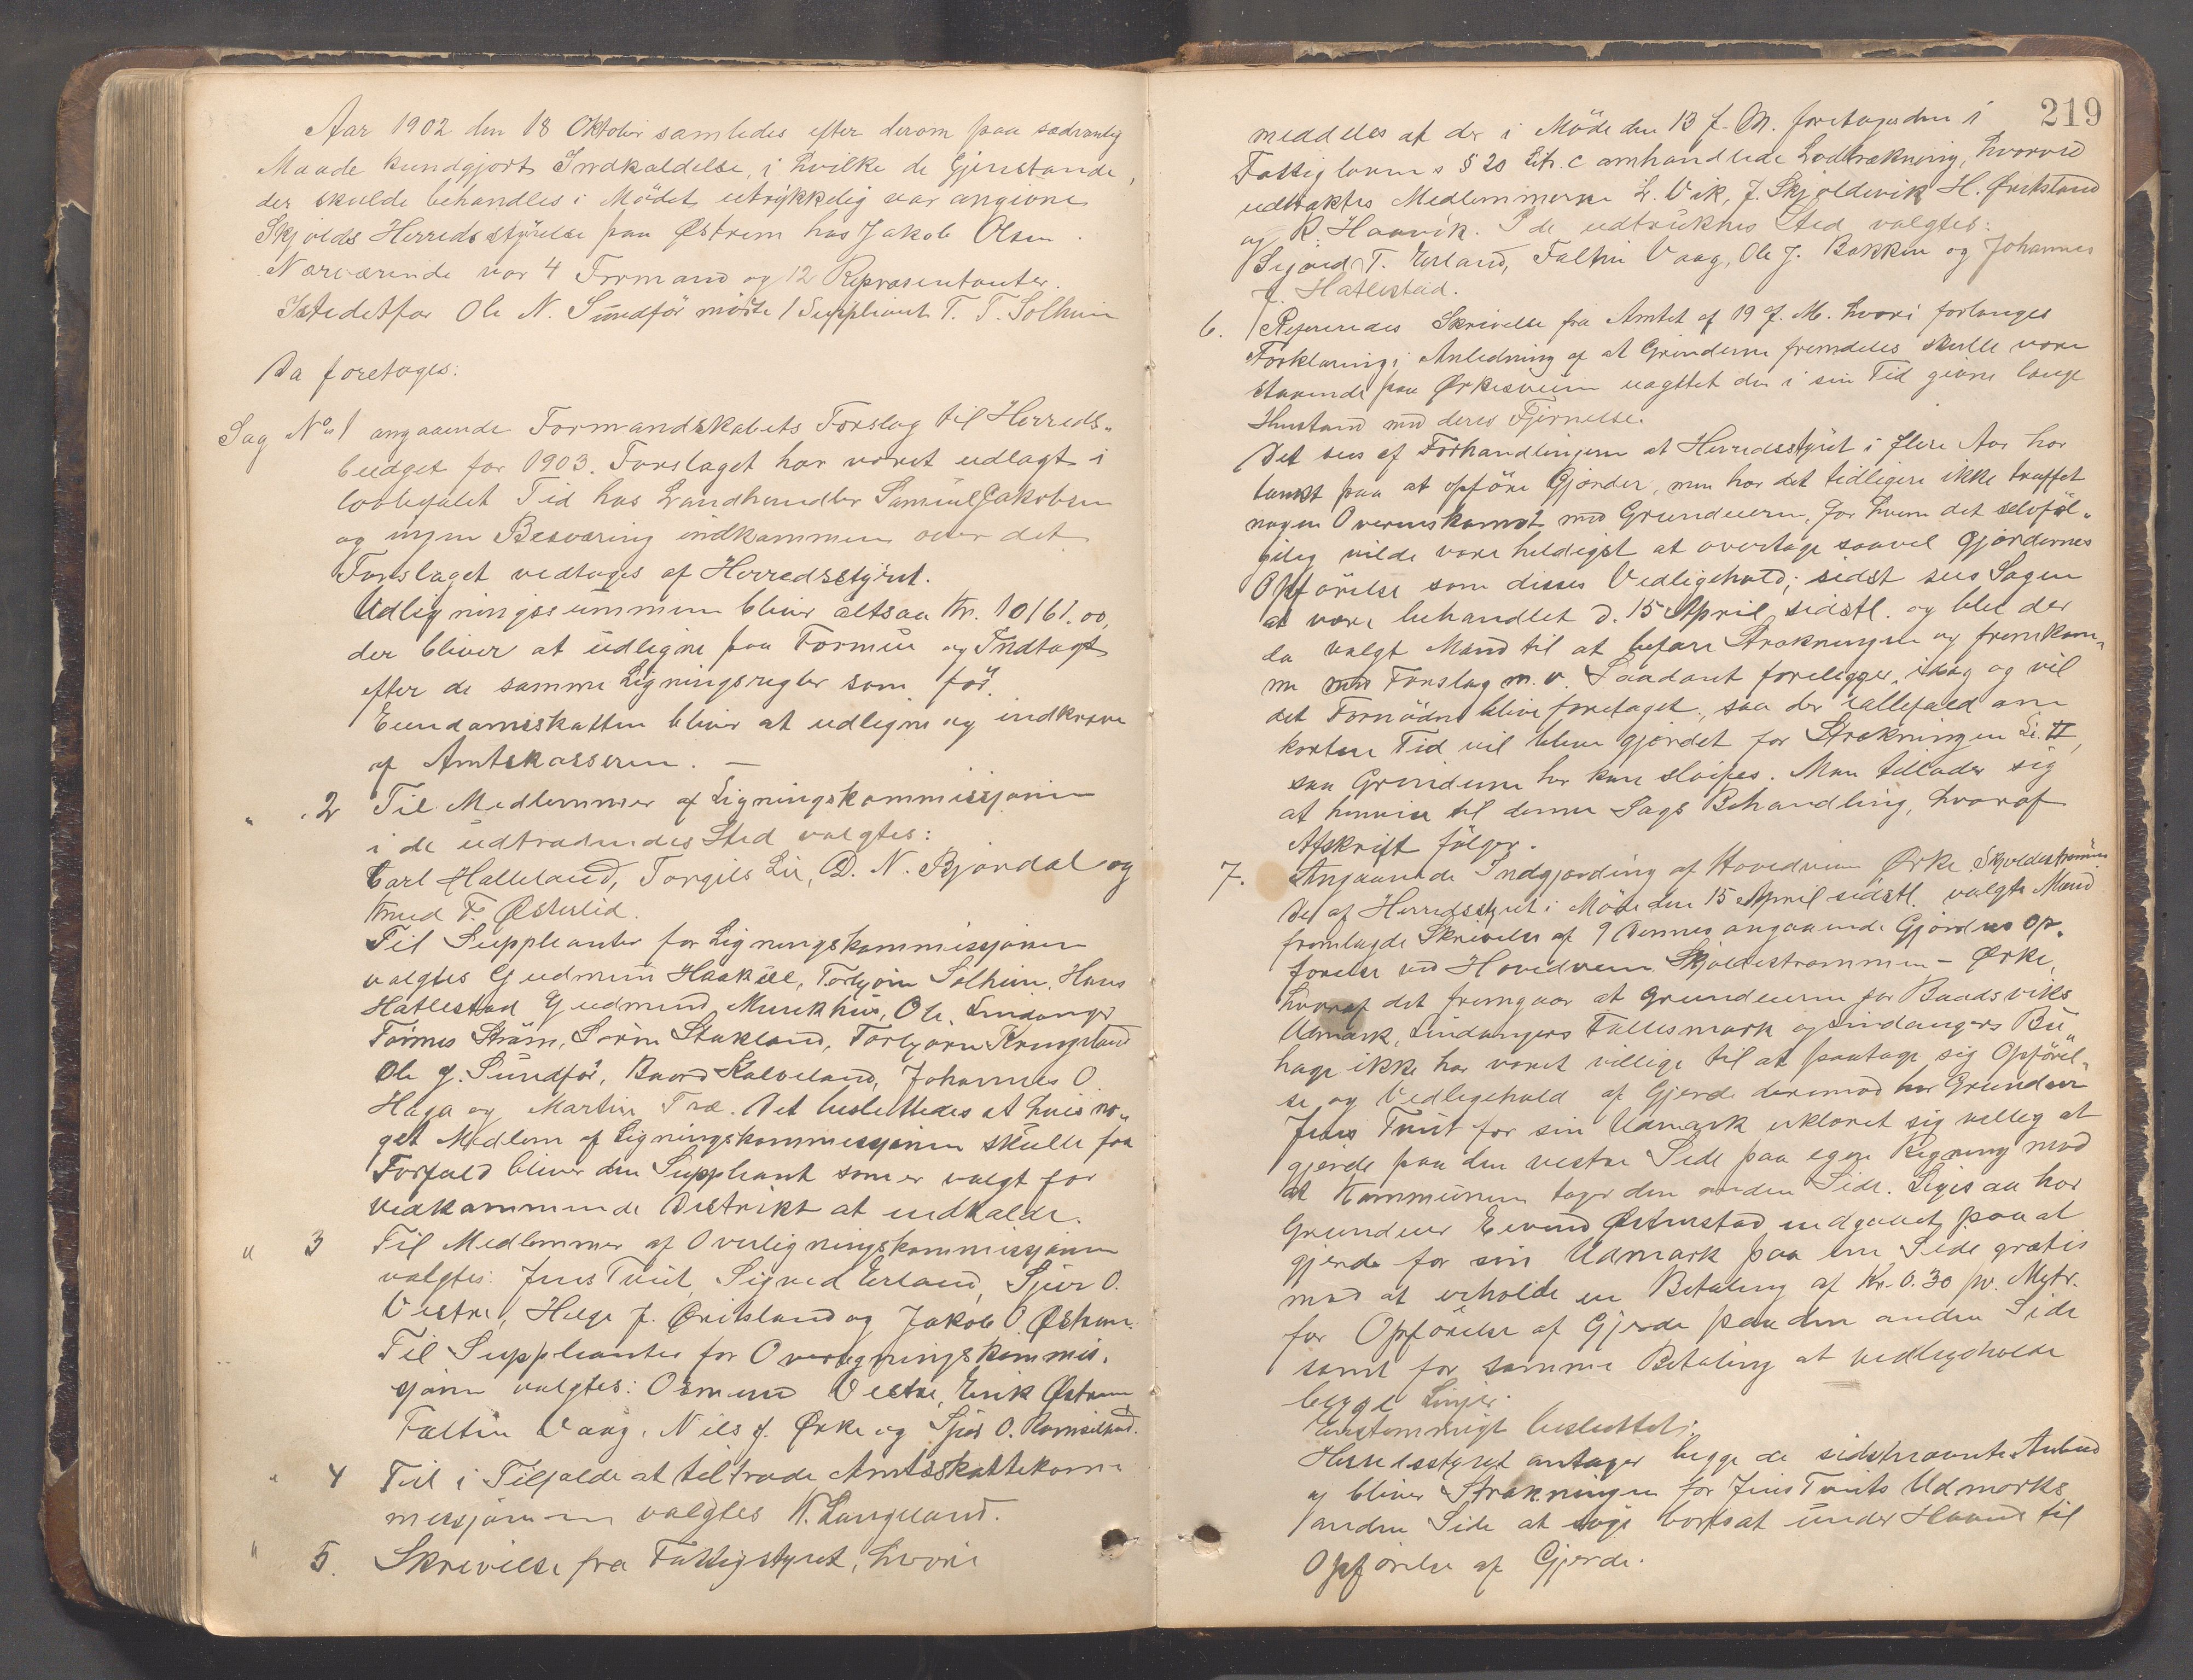 Aar 1902 den 18 Oktober samledes efter derom paa sædvanlig
Maade kundgjort Indkaldelse, i hvilke de Gjenstande,
der skulde behandles i Mödet utrykkelig var angivne
Skjolds Herredsstyrelse paa Østrem hos Jakob Olsen.
Nærværende var 4 Formænd og 12 Repræsentanter.
Istedetfor Ole N. Sundför mödte 1 Suppleant T. T. Solheim
Da foretoges:
Sag No 1 angaaende Formandskabets Forslag til Herreds-
budget for 1903. Forslaget har været udlagt i
lovbefalet Tid hos Landhandler Samuel Jakobsen
og ingen Besværing indkommen over det
Forslaget vedtoges af Herredsstyret.
Udligningssummen bliver altsaa Kr. 10161.00,
der bliver at udligne paa Formue og Indtægt
efter de samme Ligningsregler som för.
Eiendomsskatten bliver at udligne og indkræve
af Amtskassereren. —
" " 2 Til Medlemmer af Ligningskommissjonen
i de udtrædendes Sted valgtes:
Carl Halleland, Torgils Lie, D. N. Bjordal og
Knud T. Østerlid.
Til Suppleanter for Ligningskommissjonen
valgtes Gudmun Haakull, Torbjörn Solheim, Hans
Hatlestad Gudmund Munkhus, Ole Lindanger
Tormes Ström, Sören Stakland, Torbjörn Kringeland
Ole J. Sundför, Baard Kalveland, Johannes O.
Haga og Martin Træ. Det besluttedes at hvis no-
get Medlem af Ligningskommissjonen skulle faa
Forfald bliver den Suppleant som er valgt for
vedkommende Distrikt at indkalde.
" 3 Til Medlemmer af Overligningskommissjonen
valgtes: Jens Tveit, Sigved Erland, Sjur O.
Vestre, Helge J. Øriksland og Jakob O. Østrem.
Til Suppleanter for Overligningskommis-
sjonen valgtes: Osmund Vestre, Erik Østrem
Faltin Vaag, Nils J. Ørke og Sjur O. Ramsland.
" 4 Til i Tilfælde at tiltræde Amtsskattekom-
missjonen valgtes K. Langeland.
" 5. Skrivelse fra Fattigstyret, hvori
219
meddeles at der i Möde den 13 f. M. foretoges den i
Fattiglovens § 20 Litr. c omhandlede Lodtrækning, hvorved
udtraktes Medlemmerne L. Vik, J. Skjoldevik H. Øriksland
og R. Haavik. I de udtrukнes Sted valgtes:
Sigved T. Erland, Faltin Vaag, Ole J. Bakken og Johannes
J. Hatlestad.
6. Refereredes Skrivelse fra Amtet af 19 f. M. hvori forlanges
Forklaring i Anledning af at Grinderne fremdeles skulle være
staaende paa Ørkesveien uagtet den i sin Tid givne lange
Henstand med deres Fjernelse.
Det sees af Forhandlingerne at Herredsstyret i flere Aar har
tænkt paa at opföre Gjærder, men har det tidligere ikke truffet
nogen Overenskomst med Grundeierne, for hvem det selvföl-
gelig vilde være heldigst at overtage saavel Gjærdernes
Opförelse som disses Vedligehold; sidst sees Sagen
at være behandlet d. 15 April sidstl. og blev der
da valgt Mænd til at befare Strækningen og fremkom-
me med Forslag m. v. Saadant foreligger idag og vil
det Fornödne blive foretaget, saa der iallefald om
kortere Tid vil blive gjærdet for Strækningen Li. II,
saa Grinderne her kan slöifes. Man tillader sig
at henvise til denne Sags Behandling, hvoraf
Afskrift fölger.
7. Angaaende Indgjærding af Hovedveien Ørke Skjoldestrømmen
De af Herredsstyret i Möde den 15 April sidstl. valgte Mænd
fremlagde Skrivelse af 9 dennes angaaende Gjærdes Op-
förelse ved Hovedveien Skjoldestrømmen – Ørke,
hvoraf det fremgaar at Grundeierne for Baadsviks
Udmark, Lindangers Fællesmark og Lindangers Bu-
hage ikke har været villige til at paatage sig Opförel-
se og Vedligehold af Gjerde derimod har Grundeier
Jens Tveit for sin Udmark erklæret sig villig at
gjerde paa den vestre Side paa egen Regning mod
at Kommunen tager den anden Side. Ligesaa har
Grundeier Eivind Østenstad indgaaet paa at
gjerde for sin Udmark paa ene Side gratis
mod at erholde en Betaling af Kr. 0.30 pr. Metr.
for Opförelse af Gjerde paa den anden Side
samt for samme Betaling at vedligeholde
begge Linjer.
Enstemmigt besluttet:
Herredsstyret antager begge de sidstnævnte Anbud
og bliver Strækningen for Jens Tveits Udmarks
anden Side at söge bortsat under Haand til
Opförelse af Gjerde.